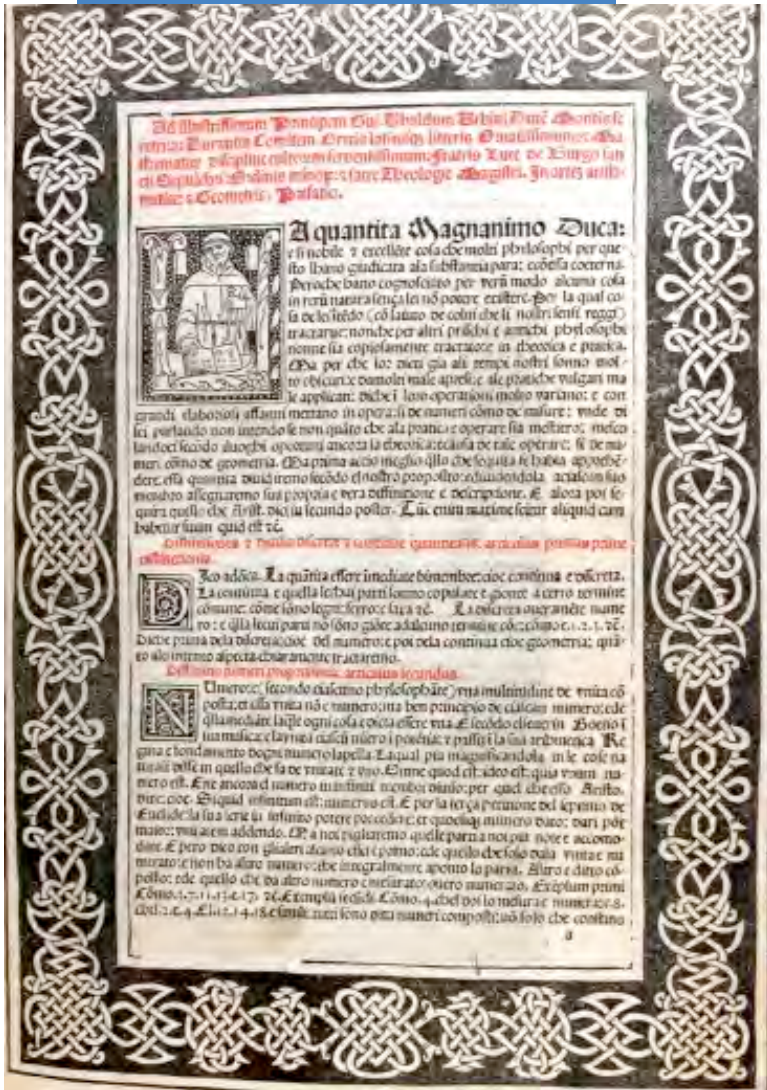 Ad illustrissimum Principem Gui. Ubaldum Urbini Ducē Montis fe
retri: ac Durantis Comitem. Grecis latinisqȝ litteris Ornatissimum: ⁊ Ma
thematice discipline cultorem ferventissimum: Fratris Luce de Burgo san
cti Sepulchri: Ordinis minoȝ: ⁊ sacre Theologie Magistri. In artē arith
metice: ⁊ Geometrie. Prefatio.
LA quantita Magnanimo Duca:
e si nobile ⁊ excellēte cosa che molti phylosophi per que
sto lhano giudicata ala substantia para: e cō essa coeterna.
Peroche hano cognosciuto per verū modo alcuna cosa
in rerū natura sença lei nō potere existere. Per la qual co
sa de lei itēdo (cō laiuto de colui che li nostri sensi reggi)
tractarne: non che per altri prischi e antichi phylosophi
nonne sia copiosamente tractato: e in theorica e pratica.
Ma per che lor dicti gia ali tempi nostri sonno mol
to obscuri: e da molti male apresi: e ale pratiche vulgari ma
le applicati: diche ī loro operationi molto variano: e con
grandi e laboriosi affanni mettano in opera: si de numeri cōmo de misure: vnde di
lei parlando non intendo se non quāto che ala pratica e operare sia mestiero: mesco
landoci secōdo li luoghi oportuni ancora la theorica: e causa de tale operare: si de nu
meri cōmo de geometria. Ma prima acio meglio qllo che sequita se habia aprehē
dere: essa quantita diuideremo secōdo el nostro proposito: e diuidendola a ciascun suo
membro assegnaremo sua propria e vera diffinitione e descriptione. E alora poi se
quira quello che Arist. dici in secundo poster. Tūc enim maxime scitur aliquid cum
habetur suum quid est ⁊c.
Diffinitiones ⁊ diuisio discrete ⁊ continue quantitatis. articulus primus prime
distinctionis.
DIco adōca. La quātita essere imediate bimembre: cioe continua e discreta.
La continua e quella le cui parti sonno copulate e gionte a certo termine
cōmune: cōme sōno legni: ferro: e saxa ⁊c. La discreta ouer amēte nume
ro: e qlla le cui parti nō sōno giōte ad alcuno termine cōe: cōmo e .1.2.3. ⁊c.
Diche prima dela discreta: cioe del numero: e poi dela continua cioe geometria: quā
to alo intento aspecta chiaramente tractaremo.
Diffinitio numeri proprissima. articulus secundus.
NUmero: e (secondo ciascuno phylosophāte) vna multitudine de vnita cō
posta: et essa vnita nō e numero: ma ben principio de ciascun numero: ede
qlla mediāte laqle ogni cosa e dicta essere vna. E secōdo el seuerin Boetio ī
sua musica: e la vnita ciascū nūero ī potētia: ⁊ passī ī la sua arithmetica Re
gina e fondamento dogni numero lapella. La qual piu magnificandola in le cose na
turali disse in quello che fa de vnitate ⁊ vno. Omne quod est: ideo est: quia vnum nu
mero est. Ene ancora el numero in infiniti membri diuiso: per quel che esso Aristo.
dice: cioe. Siquid infinitum est: numerus est. E per la terça petitione del septimo de
Euclide: la sua serie in infinito potere procedere: et quocūqȝ numero dato: dari pōt
maior: vnitatem addendo. Ma noi pigliaremo quelle parti a noi piu note e accomo
date. E pero dico con gli altri alcuno esser primo: ede quello che solo dala vnita e nu
merato: e non ha altro numero: che integralmente aponto lo parta. Altro e ditto cō
posto: ede quello che da altro numero e mesurato: ouero numerato. Exēplum primi
Cōmo .3.7.11.13.e.17. ⁊c. Exempla secūdi. Cōmo .4. chel doi lo mesura e numera: e .8.
chel .2. e .4. El .12.14.18. e simili: tutti sono ditti numeri compositi: nō solo che constino
a